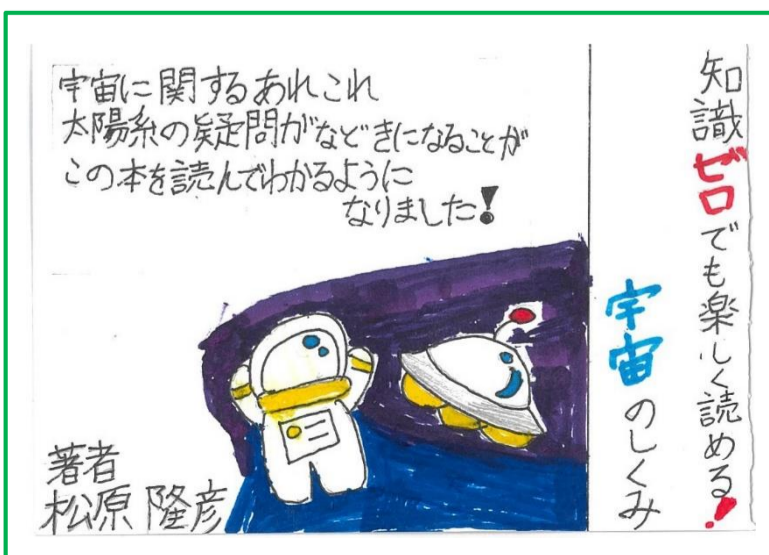 知識ゼロでも楽しく読める!
宇宙のしくみ
宇宙に関するあれこれ
太陽糸の疑問がなどきになることが
この本を読んでわかるように
なりました!
著者
松原 隆彦